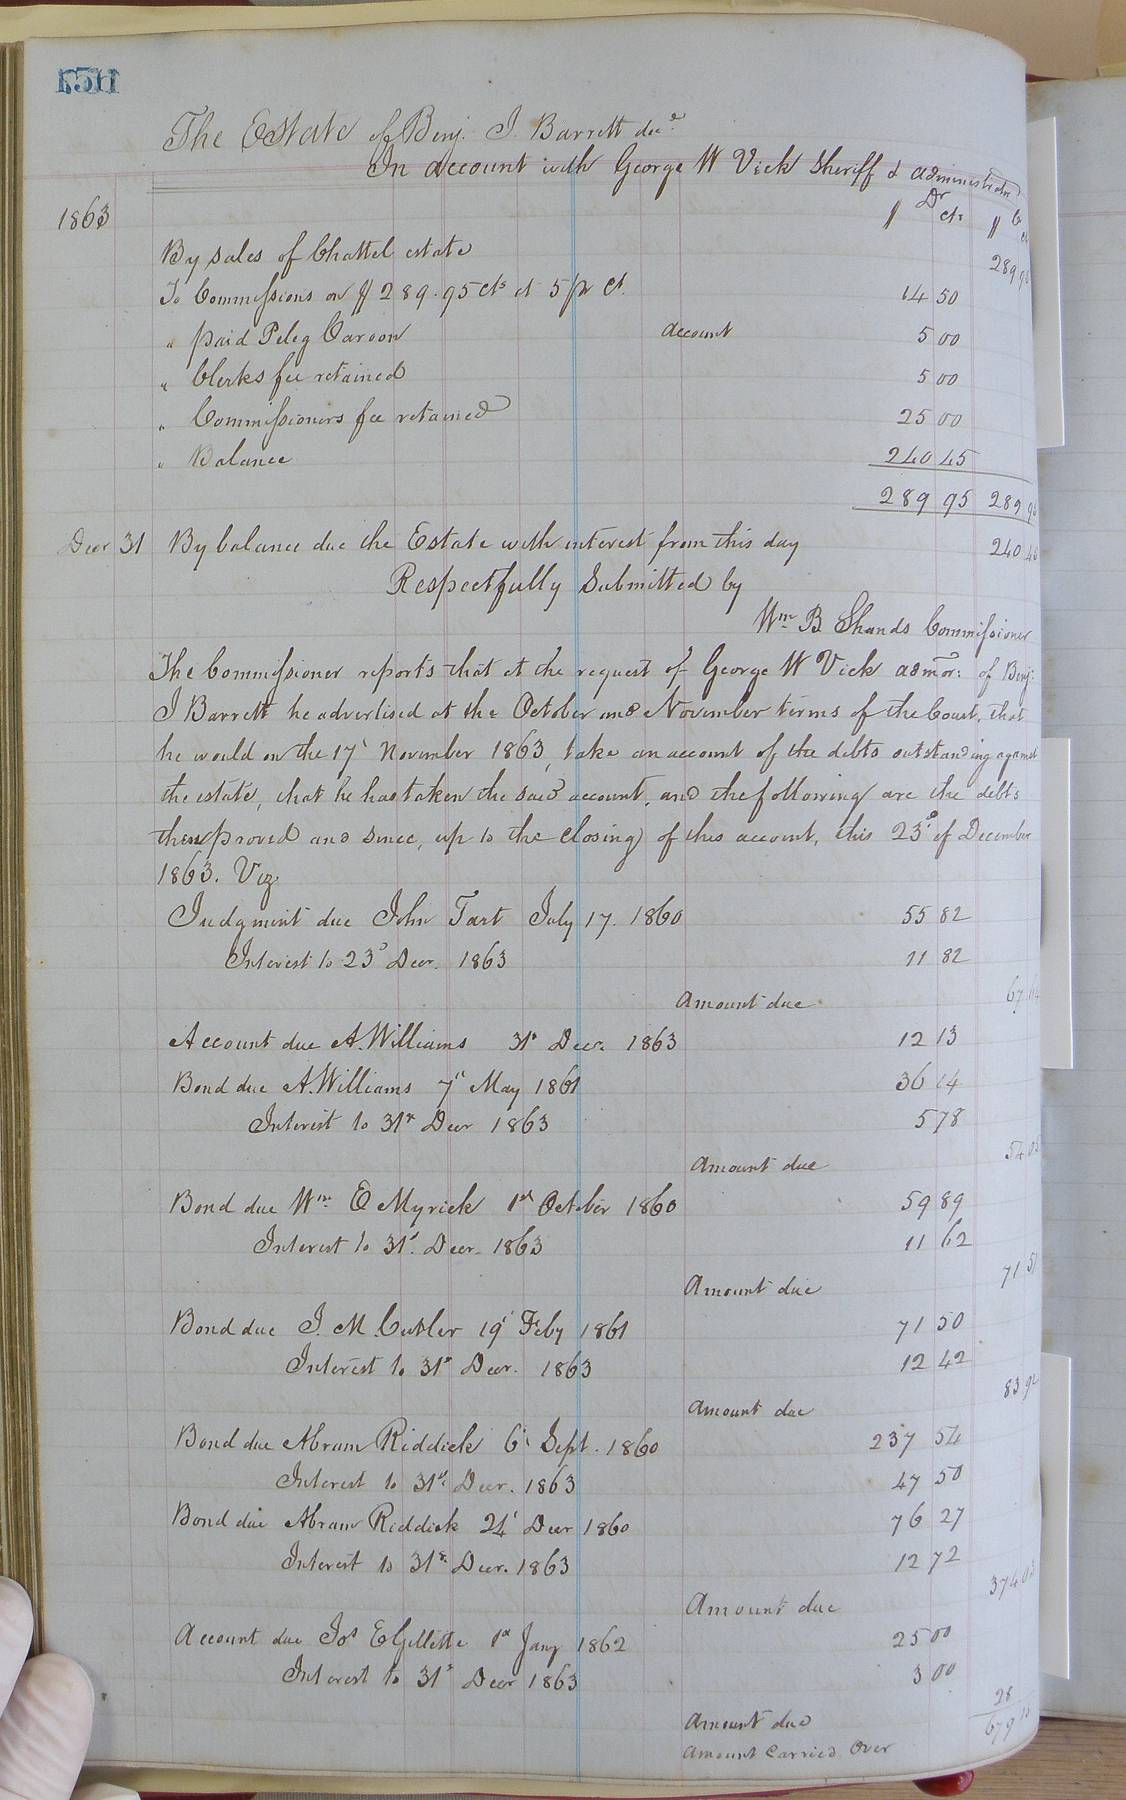 The Estate of Benj. J. Barrett decd
In account with George W Vick Sheriff & administrator
1863 $ Dr cts $ Cr
By sales of Chattel estate 289 95
To Commissions on $289.95 cts at 5 pr ct. 14 50
" paid Peleg Carson account 5 00
" Clerks fee retained 5 00
" Commissioners fee retained 25 00
" Balance 240 45
289 95 289 95
Decr 31 By balance due the Estate with interest from this day 240 45
Respectfully Submitted by
Wm B Shands Commissioner
The Commissioner reports that at the request of George W Vick admor: of Benj:
J Barrett he advertised at the October and November terms of the Court, that
he would on the 17' November 1863, take an account of the debts outstanding against
the estate, that he has taken the said account, and the following are the debts
then proved and since, up to the closing of this account, this 23d of December
1863. Viz
Judgment due John Tart July 17. 1860 55 82
Interest to 23d Decr. 1863 11 82
Amount due 67 64
Account due A. Williams 31st Decr. 1863 12 13
Bond due A. Williams 7th May 1861 36 14
Interest to 31st Decr 1863 5 78
Amount due 54 05
Bond due Wm E Myrick 1st October 1860 59 89
Interest to 31st. Decr. 1863 11 62
Amount due 71 51
Bond due J. M. Cutler 19' Feby 1861 71 50
Interest to 31st Decr. 1863 12 42
Amount due 83 92
Bond due Abram Riddick 6' Sept. 1860 237 54
Interest to 31st. Decr. 1863 47 50
Bond due Abram Riddick 24' Decr 1860 76 27
Interest to 31st. Decr. 1863 12 72
Amount due 374 03
Account due Jos E Gillette 1st Jany 1862 25 00
Interest to 31st Decr 1863 3 00
Amount due 28
Amount Carried Over 679 15